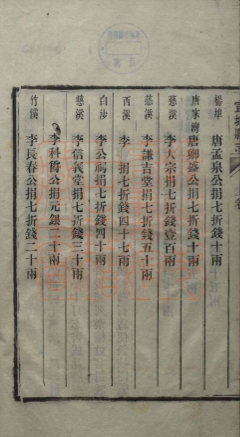 唐孟泉公捐七折錢十兩
唐家灣 唐卿盛公捐七折錢十兩
慈溪 李大宗捐七折錢壹百兩
慈溪 李謙吉堂捐七折錢五十兩
西溪 李 捐七折錢四十七兩
白沙 李公祠捐七折錢四十兩
慈溪 李信義堂捐七折錢三十兩
李科儕公捐元銀二十兩
竹溪 李長春公捐七折錢二十兩